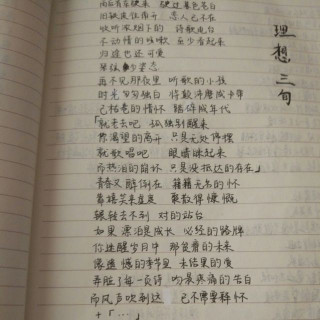 理想三旬
雨后有车驶来 驶过暮色苍白
旧铁皮往南开 恋人已不在
收听浓烟下的 诗歌电台
不动情的咳嗽 至少看起来
归途也还可爱
琴弦少姿态
再不见那夜里 听歌的小孩
时光匆匆独白 将颠沛磨成卡带
已枯卷的情怀 踏碎成年代
「就老去吧 孤独别醒来
你渴望的离开 只是无处停摆
就歌唱吧 眼睛眯起来
而热泪的崩坏 只是没抵达的存在」
青春又醉倒在 籍籍无名的怀
靠嬉笑来虚度 聚散得慷慨
辗转去不到 对的站台
如果漂泊是成长 必经的路牌
你迷醒岁月中 那贫瘠的未来
像遗憾的季节里 未结果的爱
弄脏了每一页诗 吻最疼痛的告白
而风声吹到这 已不需要释怀
+「……」